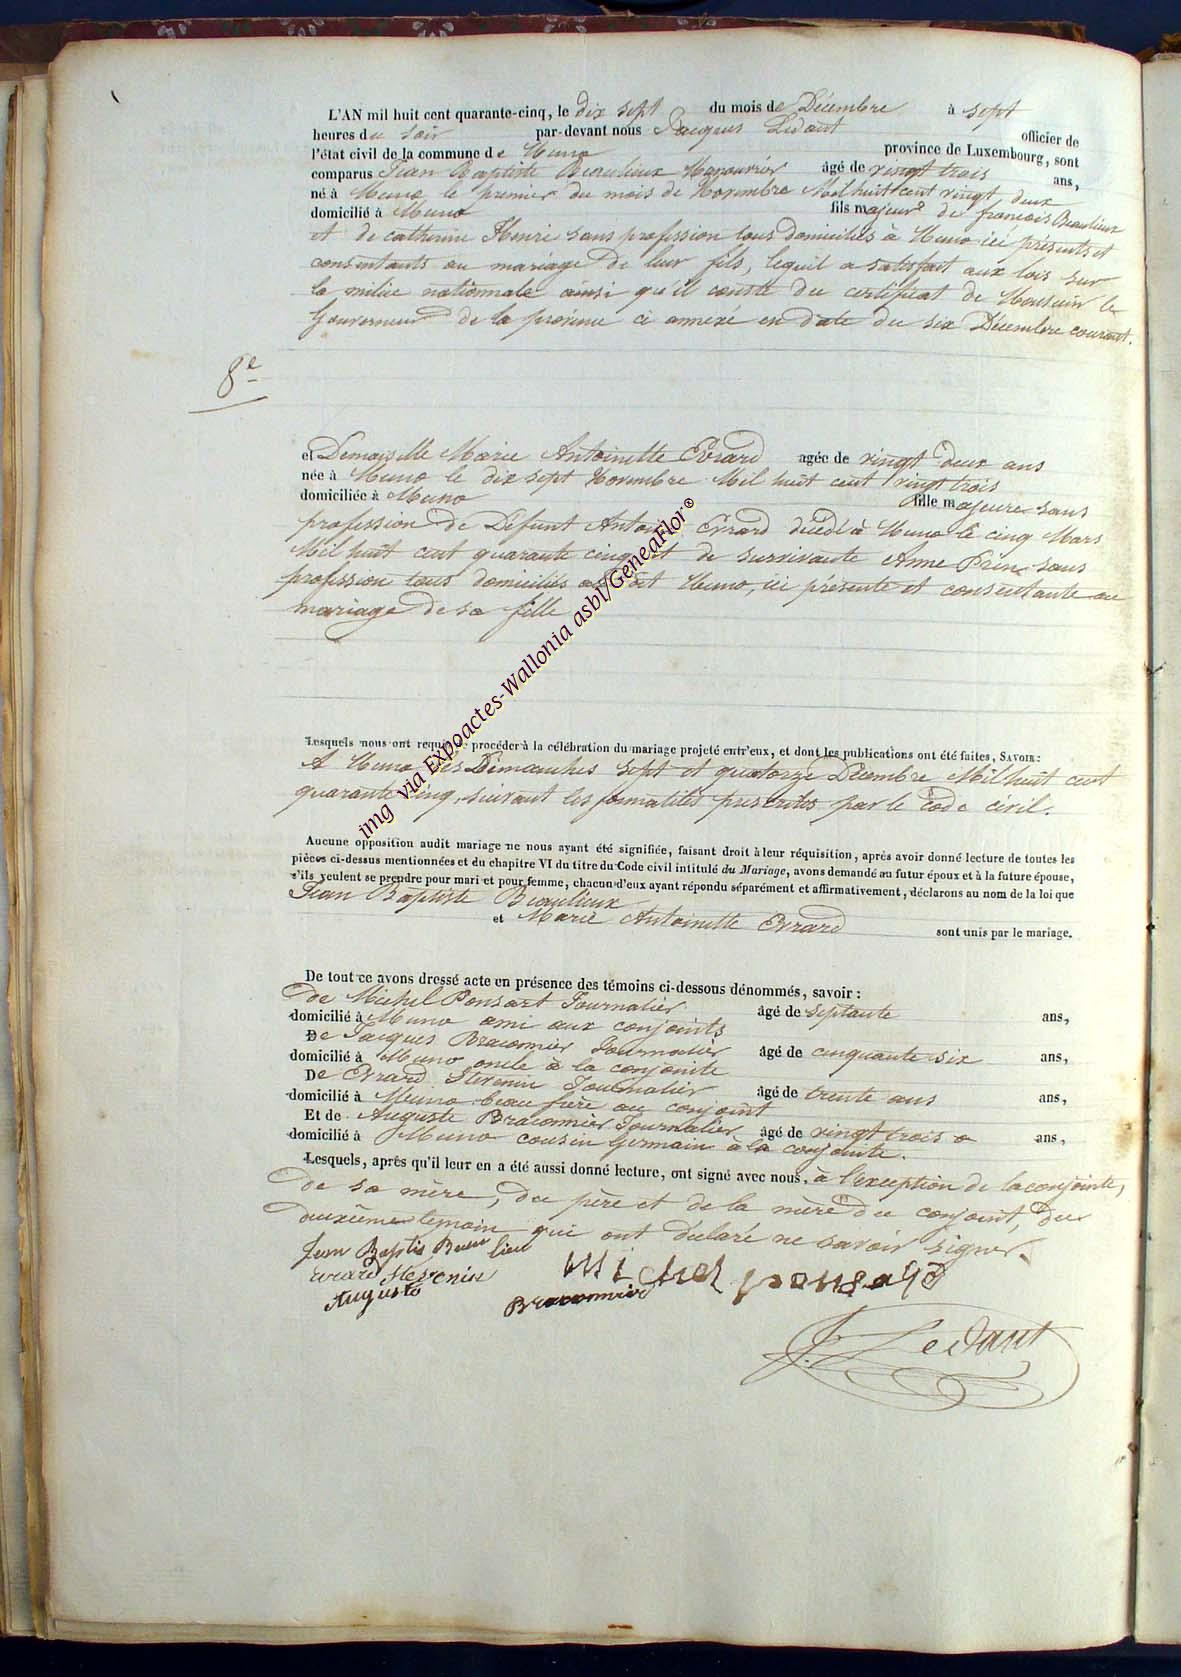 L'AN mil huit cent quarante-cinq, le dix sept du mois de Décembre à sept
heures du soir par-devant nous Jacques Ledant officier de
l'état civil de la commune de Muno province de Luxembourg, sont
comparus Jean Baptiste Beaulieux Manouvrier âgé de vingt trois ans,
né à Muno le premier du mois de Novembre Mil huit cent vingt deux
domicilié à Muno fils majeur de francois Beaulieux
et de catherine Henri sans profession tous domiciliés à Muno ici présents et
consentants au mariage de leur fils, lequil a satisfait aux lois sur
la milice nationnale ainsi qu'il conste du certificat de Monsieur le
Gouverneur de la province ci annexé en date du six Décembre courant.
8e
et Demoiselle Marie Antoinette Evrard agée de vingt deux ans
née à Muno le dix sept Novembre Mil huit cent vingt trois
domiciliée à Muno fille majeure sans
profession de Défunt Antoine Evrard décédé à Muno le cinq Mars
Mil huit cent quarante cinq et de survivante Anne Prin sans
profession tous domiciliés audit Muno, ici présente et consentante au
mariage de sa fille
img via Expoactes-Wallonia asbl/GeneaFlor®
Lesquels nous ont requis de procéder à la célébration du mariage projeté entr'eux, et dont les publications ont été faites, SAVOIR:
A Muno les Dimanches sept et quatorze Décembre Mil huit cent
quarante cinq, suivant les formalités prescrites par le code civil.
Aucune opposition audit mariage ne nous ayant été signifiée, faisant droit à leur réquisition, après avoir donné lecture de toutes les
pièces ci-dessus mentionnées et du chapitre VI du titre du Code civil intitulé du Mariage, avons demandé au futur époux et à la future épouse,
s'ils veulent se prendre pour mari et pour femme, chacun d'eux ayant répondu séparément et affirmativement, déclarons au nom de la loi que
Jean Baptiste Beaulieux
et Marie Antoinette Evrard sont unis par le mariage.
De tout ce avons dressé acte en présence des témoins ci-dessous dénommés, savoir:
de Michel Ponsart Journalier âgé de septante ans,
domicilié à Muno ami aux conjoints
De Jacques Braconnier Journalier âgé de cinquante six ans,
domicilié à Muno oncle à la conjointe
De Evrard Stevenin Journalier âgé de trente ans ans,
domicilié à Muno beau frère au conjoint
Et de Auguste Braconnier Journalier âgé de vingt trois a ans,
domicilié à Muno cousin Germain à la conjointe.
Lesquels, après qu'il leur en a été aussi donné lecture, ont signé avec nous, à l'exception de la conjointe,
de sa mère, du père et de la mère du conjoint, du
deuxième temoin qui ont déclaré ne savoir signer.
Jean Baptis Beau lieu
evrard Stevenin michel ponsard
Auguste Braconnier
J. Ledant